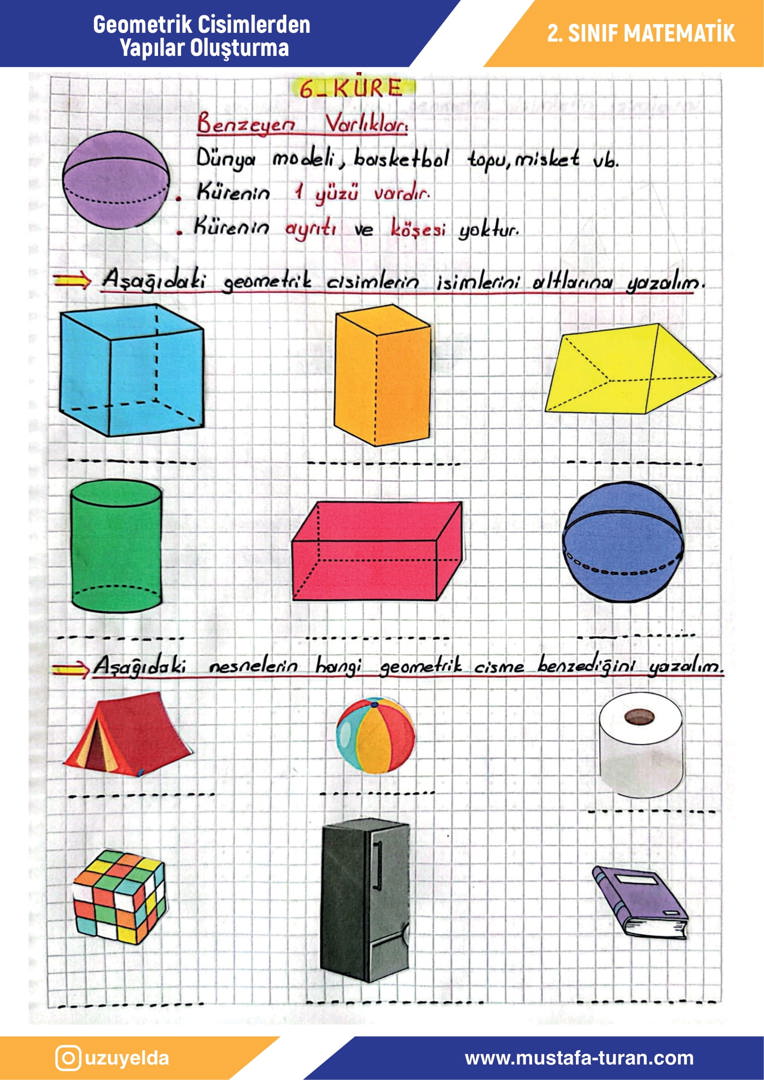 Geometrik Cisimlerden
Yapılar Oluşturma
2. SINIF MATEMATİK
6_KÜRE
Benzeyen Varlıklar:
Dünya modeli, basketbol topu, misket vb.
. Kürenin 1 yüzü vardır.
. Kürenin ayrıtı ve köşesi yoktur.
Aşağıdaki geometrik cisimlerin isimlerini altlarına yazalım.
Aşağıdaki nesnelerin hangi geometrik cisme benzediğini yazalım.
uzuyelda
www.mustafa-turan.com